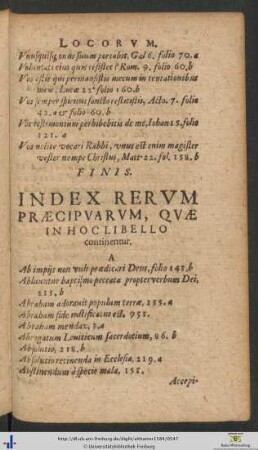 LOCORVM.
Vnusquisq; onus suum portabit. Gal 6. folio 70. a
Voluntati eius quis resistet? Rom. 9. folio 60. b
Vos estis qui permansistis mecum in tentationibus
meis. Lucæ 22 folio 160. b
Vos semper spiritui sancto restitistis, Acto. 7. folio
42. a & folio 60. b
Vos testimonium perhibebitis de me. Iohan 15. folio
121. a
Vos nolite vocari Rabbi, vnus est enim magister
vester nempe Christus, Matt 22. fol. 158. b
FINIS.
INDEX RERVM
PRÆCIPVARVM, QVÆ
IN HOC LIBELLO
continentur.
A
Ab impijs non vult prædicari Deus, folio 143. b
Abluuntur baptismo peccata propter verbum Dei,
211. b
Abraham adorauit populum terræ, 235. a
Abraham fide iustificatus est. 95.
Abraham mendax, 3. a
Abrogatum Leuiticum sacerdotium, 86. b
Absolutio, 218. b
Absolutio retinenda in Ecclesia, 219. a
Abstinendum à specie mala, 152.
Accepi-
http://dl.ub.uni-freiburg.de/diglit/althamer1584/0547
© Universitätsbibliothek Freiburg
Baden-Württemberg